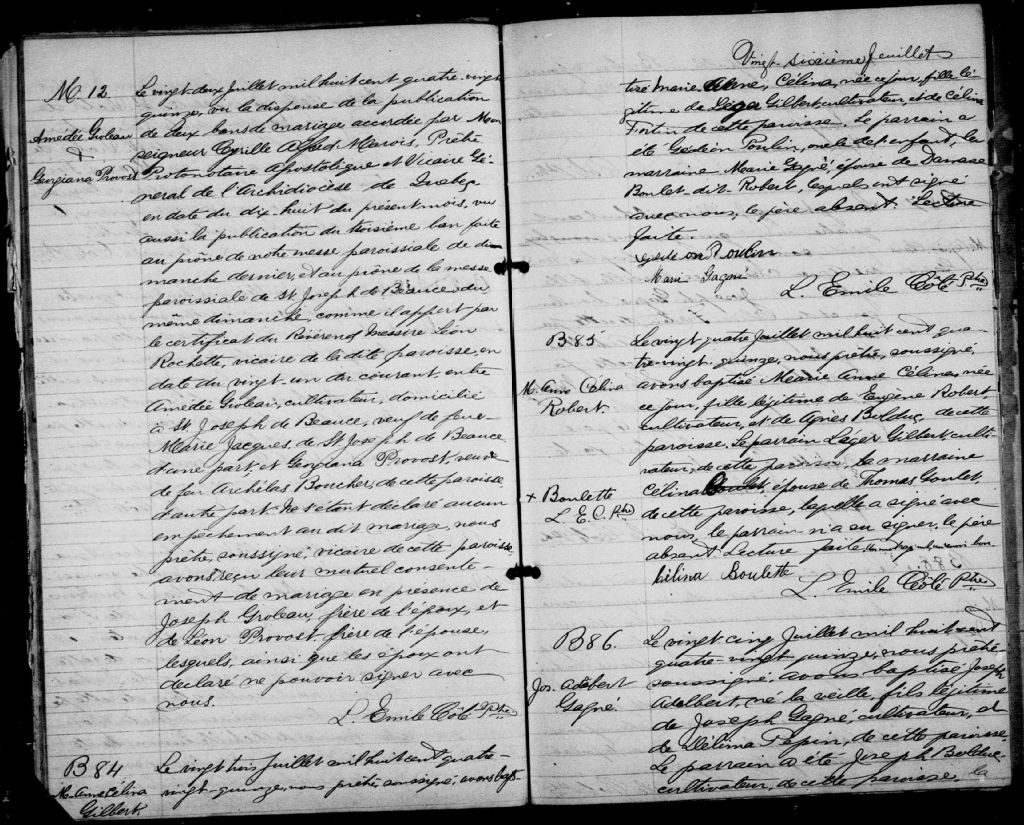 M. 12
Amédée Groleau
&
Georgiana Provost
Le vingt deux Juillet mil huit cent quatre-vingt
quinze, vu la dispense de la publication
de deux bans de mariage accordée par Mon
seigneur Cyrille Alfred Marois, Prêtre
Protonotaire Apostolique et Vicaire Gé-
néral de l'Archidiocèse de Quebec
en date du dix-huit du présent mois, vu
aussi la publication du troisième ban faite
au prône de notre messe paroissiale de di-
manche dernier, et au prône de la messe
paroissiale de St Joseph de Beauce du
même dimanche, comme il appert par
le certificat du Révérend Messire Léon
Rochette, vicaire de la dite paroisse, en
date du vingt-un du courant, entre
Amédée Groleau, cultivateur, domicilié
à St. Joseph de Beauce, veuf de feue
Marie Jacques de St Joseph de Beauce
d'une part, et Georgiana Provost, veuve
de feu Archélas Boucher, de cette paroisse
d'autre part. Ne s'étant déclaré aucun
empêchement au dit mariage, nous
prêtre, soussigné, vicaire de cette paroisse
avons reçu leur mutuel consente-
ment de mariage en présence de
Joseph Groleau, frère de l'époux, et
de Léon Provost, frère de l'épouse,
lesquels, ainsi que les époux ont
déclaré ne pouvoir signer avec
nous.
L. Emile Côté Ptre
B 84
M. Anne Célina
Gilbert.
Le vingt trois Juillet mil huit cent quatre-
vingt-quinze, nous prêtre soussigné, avons bap-
Vingt sixième feuillet
tisé Marie Anne, Célina, née ce jour, fille lé-
gitime de Léger Gilbert cultivateur, et de Célina
Fortin de cette paroisse. Le parrain a
été Gédéon Poulin, oncle de l'enfant, la
marraine Marie Gagné, épouse de Damase
Boulet dit Robert, lesquels ont signé
avec nous, le père absent. Lecture
faite.
Gédéon Poulin
Marie Gagné
L. Emile Côté Ptre
B 85
M. Anne Célina
Robert.
Le vingt quatre Juillet mil huit cent qua-
tre-vingt-quinze, nous prêtre, soussigné,
avons baptisé Marie Anne Célina, née
ce jour, fille légitime de Eugène Robert,
cultivateur, et de Agnès Bolduc, de cette
paroisse. Le parrain Léger Gilbert culti-
vateur, de cette paroisse, la marraine
Célina Boulet, épouse de Thomas Goulet,
de cette paroisse, laquelle a signé avec
nous, le parrain n'a su signer, le père
absent. Lecture faite.
+ Boulette
L. E. C. Ptre
Célina Boulette
L. Emile Côté Ptre
B 86.
Jos. Adalbert
Gagné
Le vingt cinq Juillet mil huit cent
quatre-vingt quinze, nous prêtre
soussigné avons baptisé Joseph
Adalbert, né la veille, fils légitime
de Joseph Gagné, cultivateur, et
de Délima Pépin, de cette paroisse.
Le parrain a été Joseph Bolduc
cultivateur, de cette paroisse, la